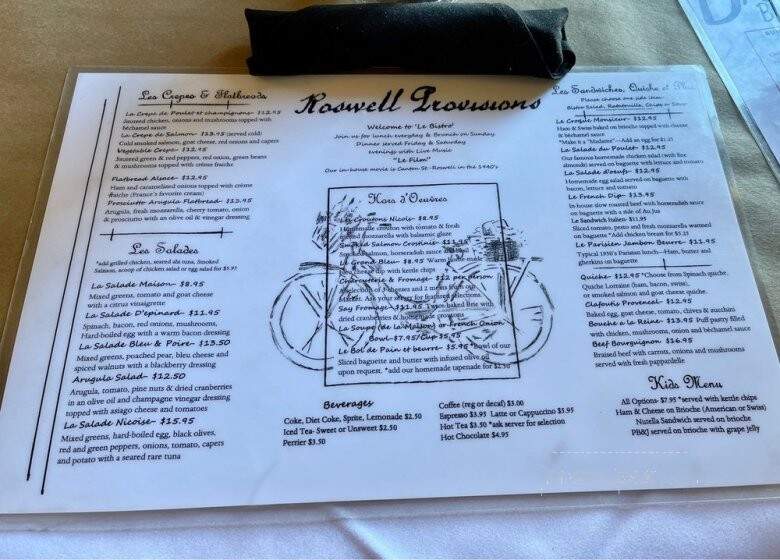 Les Crepes & Flatbreads
La Crepe de Poulet et champignons- $12.95
Sauteed chicken, onions and mushrooms topped with
béchamel sauce
La Crepe de Salmon- $13.95 (served cold)
Cold smoked salmon, goat cheese, red onions and capers
Vegetable Crepe- $12.95
Sauteed green & red peppers, red onion, green beans
& mushrooms topped with crème fraiche
Flatbread Alsace- $12.95
Ham and caramelized onions topped with crème
fraiche (France's favorite cream)
Prosciutto Arugula Flatbread- $12.95
Arugula, fresh mozzarella, cherry tomato, onion
& prosciutto with an olive oil & vinegar dressing
Les Salades
*add grilled chicken, seared ahi tuna, Smoked
Salmon, scoop of chicken salad or egg salad for $5.95
La Salade Maison- $8.95
Mixed greens, tomato and goat cheese
with a citrus vinaigrette
La Salade D'epinard- $11.95
Spinach, bacon, red onions, mushrooms,
Hard-boiled egg with a warm bacon dressing
La Salade Bleu & Poire- $13.50
Mixed greens, poached pear, bleu cheese and
spiced walnuts with a blackberry dressing
Arugula Salad- $12.50
Arugula, tomato, pine nuts & dried cranberries
in an olive oil and champagne vinegar dressing
topped with asiago cheese and tomatoes
La Salade Nicoise- $15.95
Mixed greens, hard-boiled egg, black olives,
red and green peppers, onions, tomato, capers
and potato with a seared rare tuna
Roswell Provisions
Welcome to 'Le Bistro'
Join us for lunch everyday & Brunch on Sunday
Dinner served Friday & Saturday
evenings with Live Music
"Le Film"
Our in-house movie is Canton St.-Roswell in the 1940's
Hors d'Oeuvres
Les Croutons Nicois- $8.95
Homemade crouton with tomato & fresh
mozzarella with balsamic glaze
Smoked Salmon Crostinis- $11.95
Smoked salmon, horseradish sauce
Le Grand Bleu- $8.95 Warm
cheese dip with kettle chips
Charcuterie & Fromage- $12 per person
A selection of 3 cheeses and 2 meats from our
Market. Ask your server for featured selections
Say Fromage- $11.95 Warm baked brie with
dried cranberries & homemade croutons
La Soupe (de la Maison) or French Onion
Bowl-$7.95/Cup $5.95
Le Bol de Pain et beurre- $5.95 *Bowl of our
Sliced baguette and butter with infused olive oil
upon request. *add our homemade tapenade for $2.50
Beverages
Coke, Diet Coke, Sprite, Lemonade $2.50
Iced Tea- Sweet or Unsweet $2.50
Perrier $3.50
Coffee (reg or decaf) $3.00
Espresso $3.95 Latte or Cappuccino $5.95
Hot Tea $3.50 *ask server for selection
Hot Chocolate $4.95
Les Sandwiches, Quiche et
Please choose one side item-
Bistro Salad, Ratatouille, Chips or
Le Croque Monsieur- $12.95
Ham & Swiss baked on brioche topped with cheese
& béchamel sauce
*Make it a "Madame"- Add an egg for $1.25
La Salade du Poulet- $12.95
Our famous homemade chicken salad (with fine
almonds) on baguette with lettuce and tomato
La Salade d'oeufs- $12.95
Homemade egg salad served on baguette with
bacon, lettuce and tomato
Le French Dip- $13.95
In-house slow roasted beef with horseradish sauch
on baguette with a side of Au Jus
Le Sandwich Italien- $11.95
Sliced tomato, pesto and fresh mozzarella warmed
on baguette *Add chicken breast for $3.25
Le Parisien Jambon Beurre- $11.95
Typical 1950's Parisian lunch- Ham, butter and
gherkins on baguette
Quiche- $12.95 *Choose from Spinach quiche,
Quiche Lorraine (ham, bacon, swiss),
or smoked salmon and goat cheese quiche.
Clafoutis Provencal- $12.95
Baked egg, goat cheese, tomato, chives & zucchini
Bouche a la Reine- $13.95 Puff pastry filled
with chicken, mushrooms, onion and béchamel sauce
Beef Bourguignon- $16.95
Braised beef with carrots, onions and mushrooms
served with fresh pappardelle
Kids Menu
All Options- $7.95 *served with kettle chips
Ham & Cheese on Brioche (American or Swiss)
Nutella Sandwich served on brioche
PB&J served on brioche with grape jelly